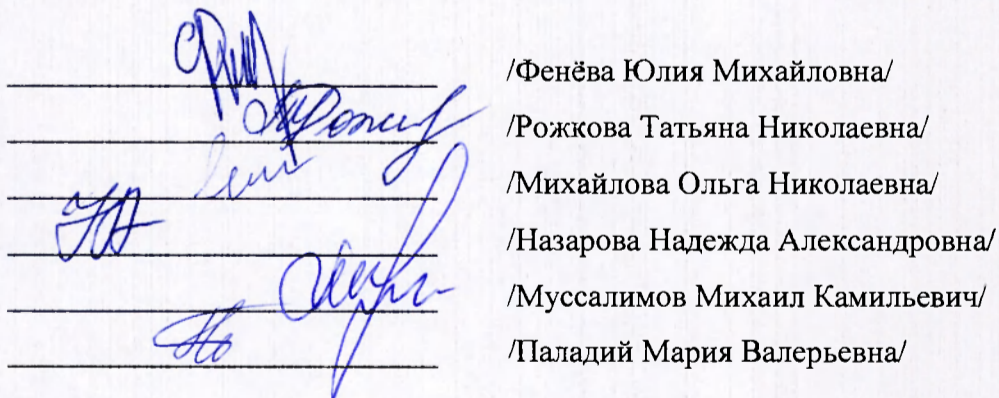 /Фенёва Юлия Михайловна/
/Рожкова Татьяна Николаевна/
/Михайлова Ольга Николаевна/
/Назарова Надежда Александровна/
/Муссалимов Михаил Камильевич/
/Паладий Мария Валерьевна/